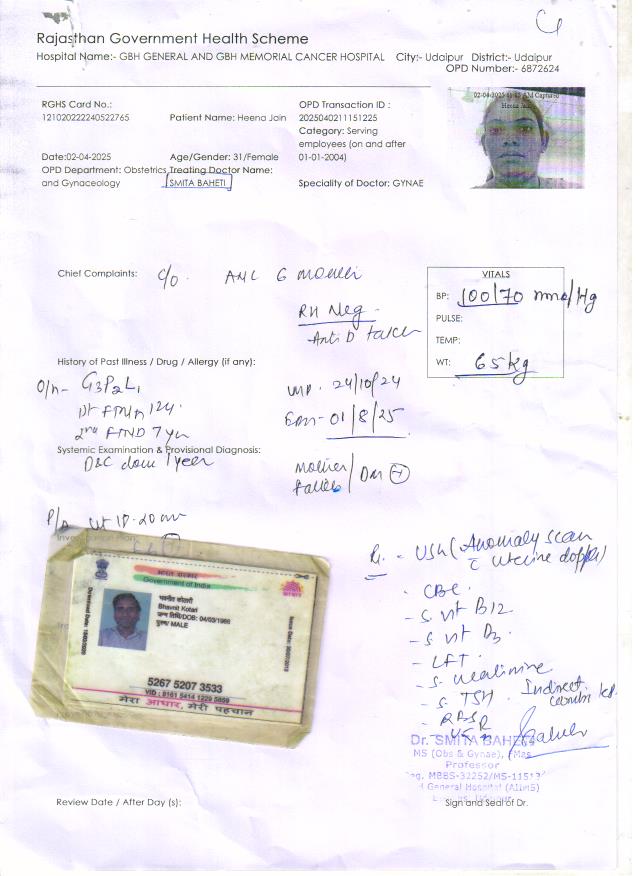 Rajasthan Government Health Scheme
Hospital Name:- GBH GENERAL AND GBH MEMORIAL CANCER HOSPITAL City:- Udaipur District:- Udaipur
OPD Number:- 6872624
RGHS Card No.:
121020222240522765
Patient Name: Heena Jain
OPD Transaction ID :
2025040211151225
Category: Serving
employees (on and after
01-01-2004)
02-04-2025 AM Captured
Heena Jain
Date:02-04-2025
Age/Gender: 31/Female
OPD Department: Obstetrics
and Gynaecology
Treating Doctor Name:
SMITA BAHETI
Speciality of Doctor: GYNAE
Chief Complaints: c/o. ANC 6 month
RH Neg -
Anti D taken
VITALS
BP: 100/70 mm/Hg
PULSE:
TEMP:
WT: 65kg
History of Past Illness / Drug / Allergy (if any):
O/h- G3P2L1
24/10/24
01/8/25
2nd FTND 7 yr
Systemic Examination & Provisional Diagnosis:
D&C done 1 year
Mother / DM +
P/A ut 18-20
USG (Anomaly scan
c uterine doppler)
- CBC
- S. Vit B12
- S. Vit D3
- LFT
- S. creatinine
- S. TSH. Indirect
- RBS
भारत सरकार
Government of India
भवनीत कोठारी
Bhavnit Kotari
जन्म तिथि/DOB: 04/03/1986
पुरुष/ MALE
5267 5207 3533
VID : 9161 5414 1229 5859
मेरा आधार, मेरी पहचान
Dr. SMITA BAHETI
MS (Obs & Gynae),
Professor
MBBS-32252/MS-1151
General Hospital (AIIMS)
Review Date / After Day (s):
Sign and Seal of Dr.